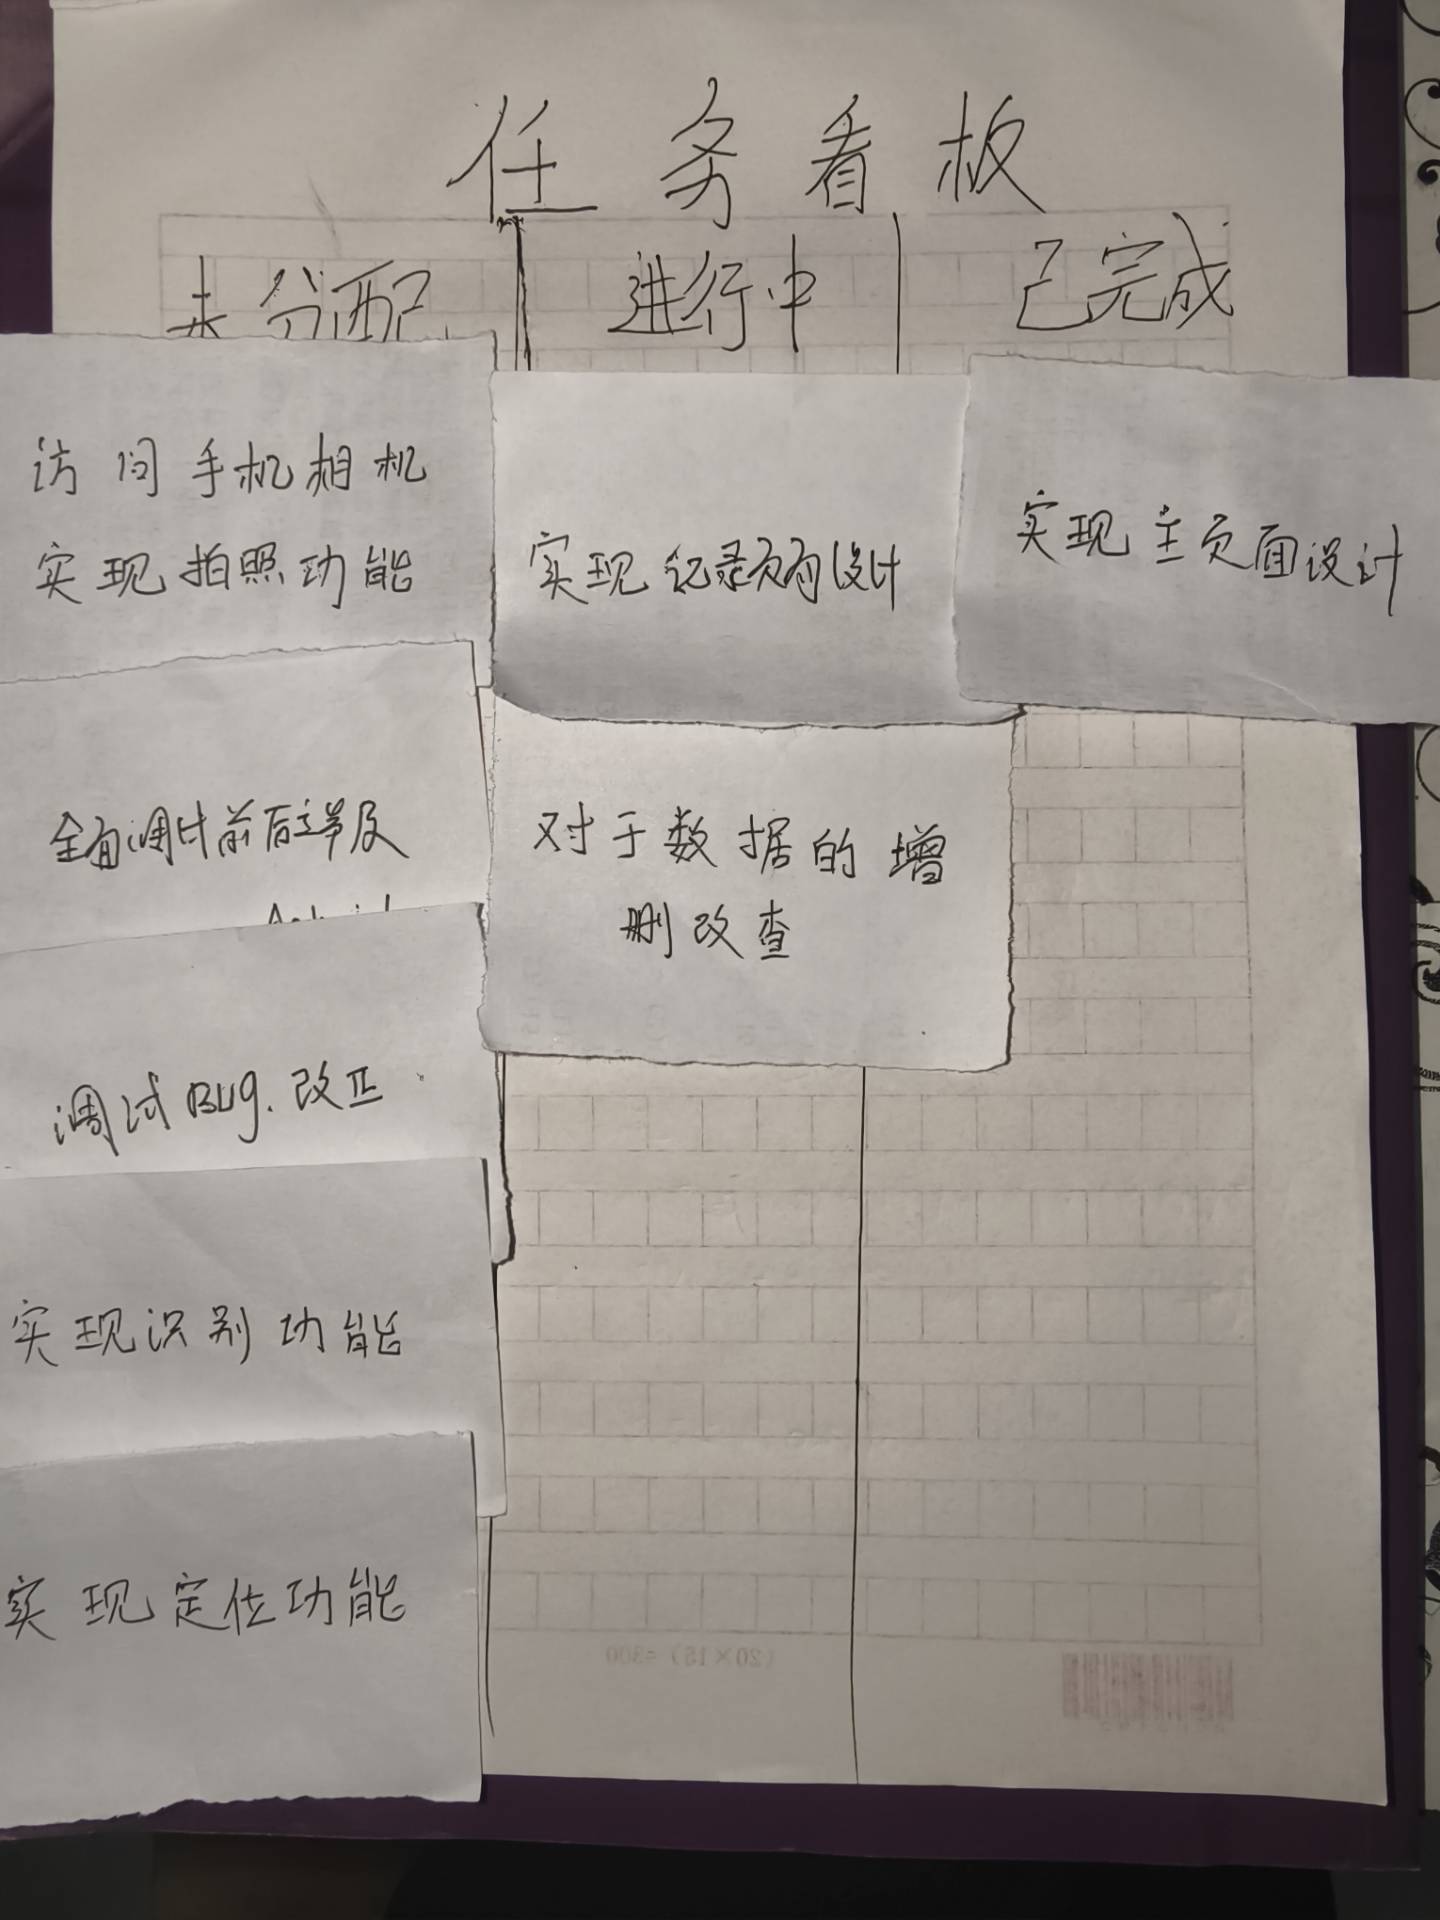 任务看板
未分配
进行中
已完成
访问手机相机
实现拍照功能
全面调试前后端及
调试Bug.改正
实现识别功能
实现定位功能
实现纪录页面设计
对于数据的增
删改查
实现主页面设计
(20×15)=300